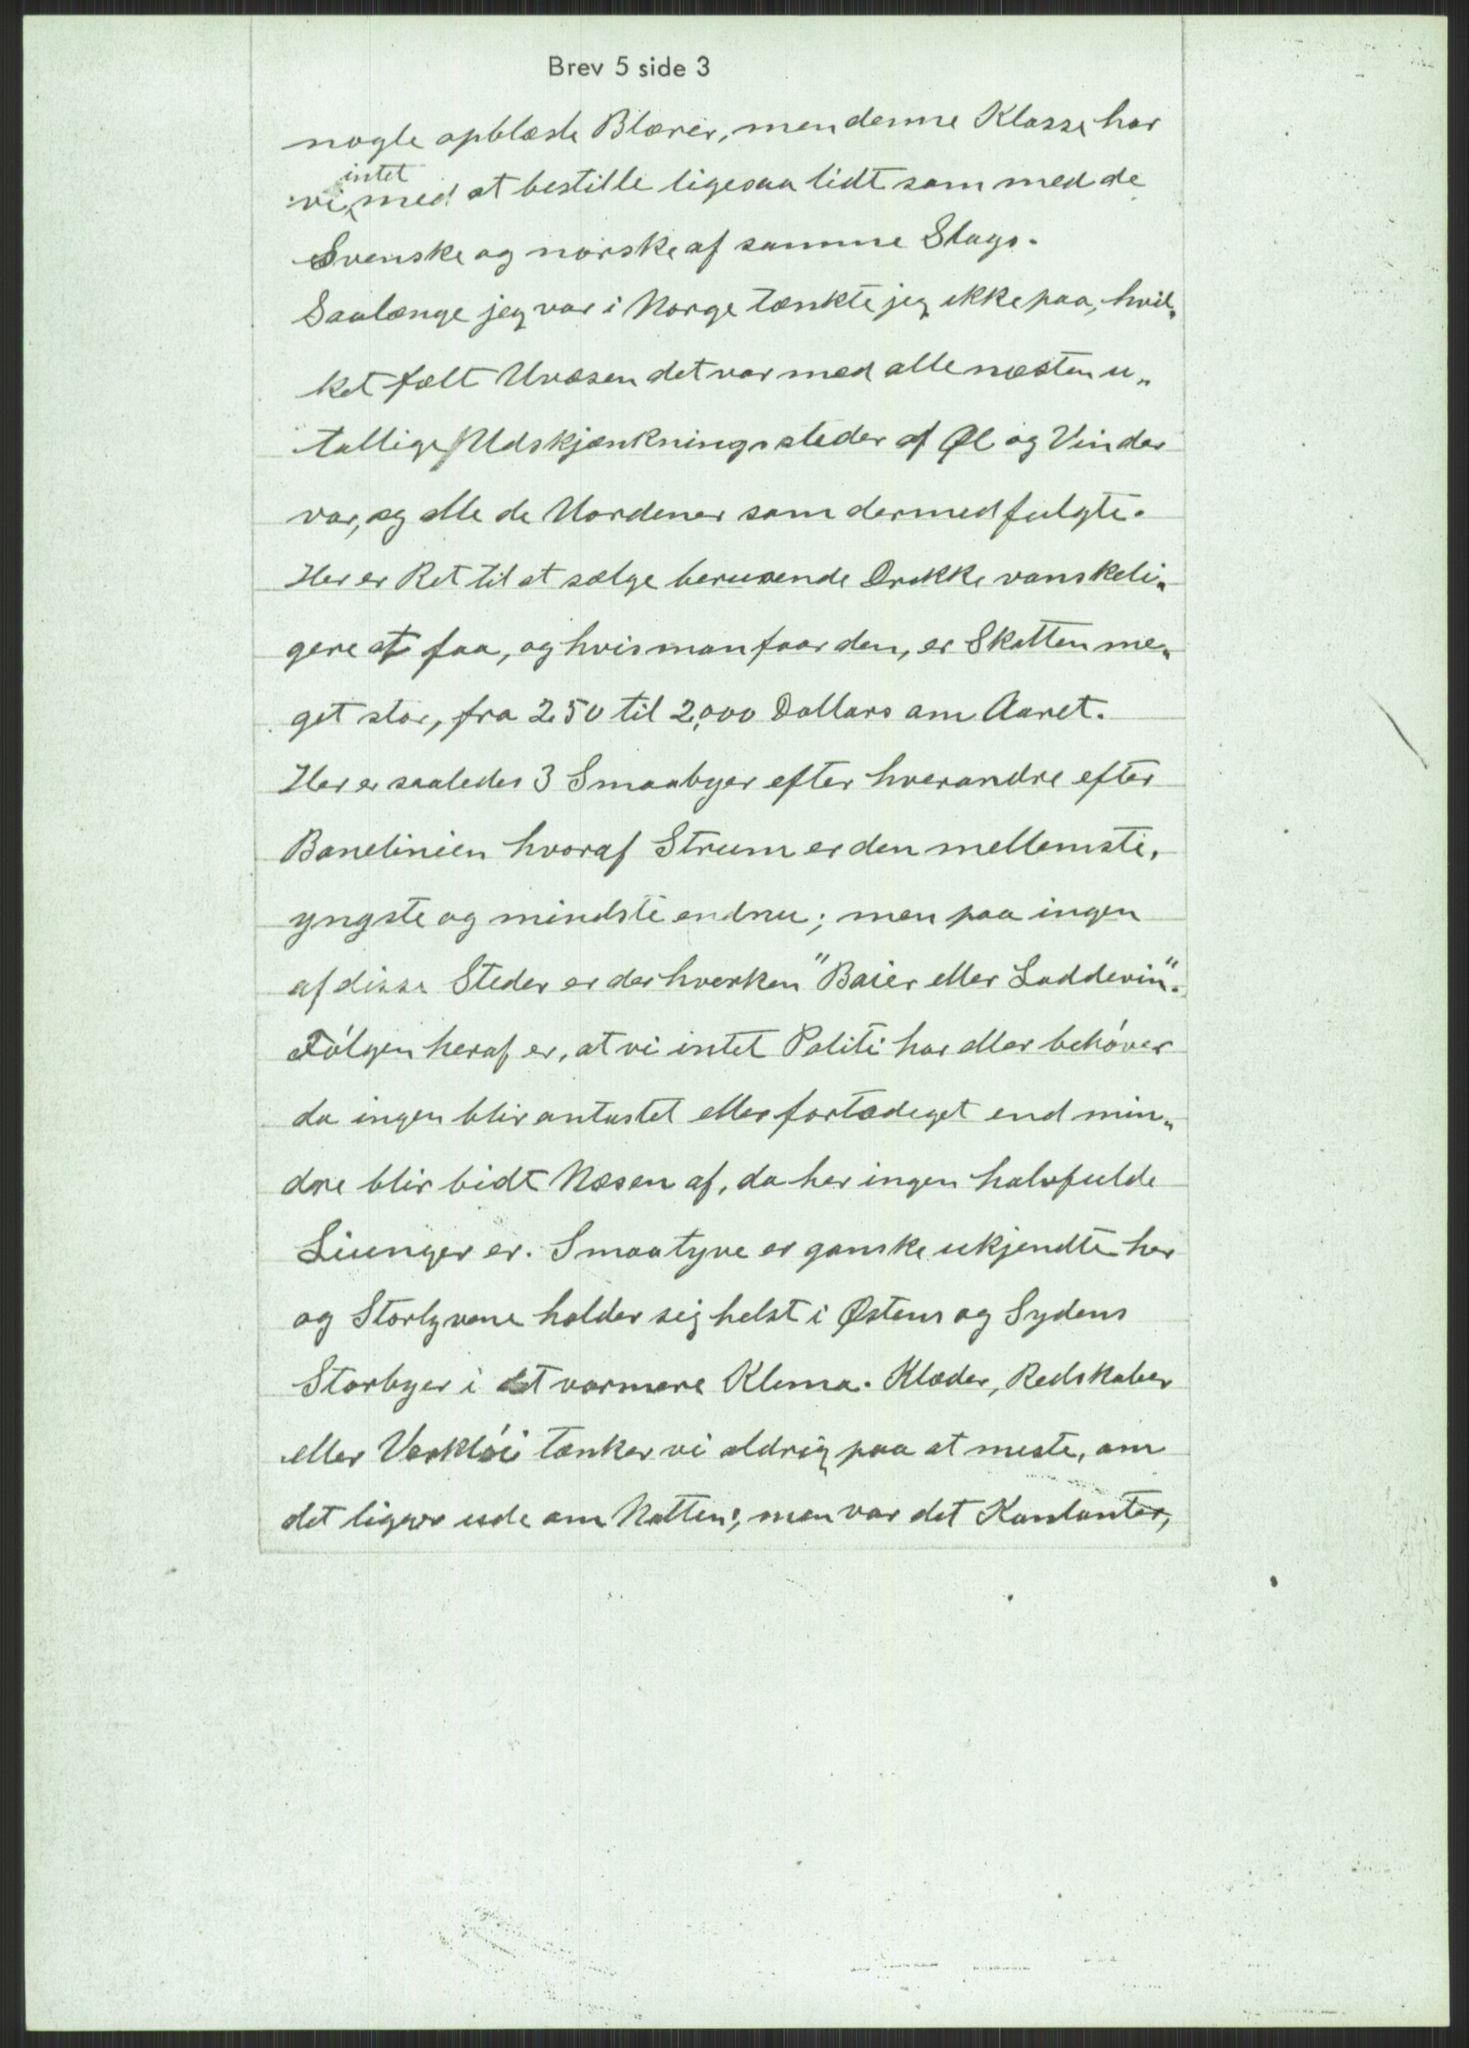 Brev 5 side 3
nogle opblæste Blærer, men denne Klasse har
intet
vi med at bestille ligesaa lidt som med de
Svenske og norske af samme Slags.
Saalænge jeg var i Norge tænkte jeg ikke paa, hvil„
ket fælt Uvæsen det var med alle næsten u„
tallige Udskjænkningssteder af Øl og Vin der
var, og alle de Uordener som dermed fulgte.
Her er Ret til at sælge berusende Drikke vanskeli„
gere at faa, og hvis man faar den, er Skatten me„
get stor, fra 250 til 2,000 Dollars om Aaret.
Her er saaledes 3 Smaabyer efter hverandre efter
Banelinien hvoraf Strum er den mellemste,
yngste og mindste endnu; men paa ingen
af disse Steder er der hverken "Baier eller Laddevin".
Følgen heraf er, at vi intet Politi har eller behøver
da ingen blir antastet eller fortædiget end min„
dre blir bidt Næsen af, da her ingen halvfulde
Liunger er. Smaatyve er ganske ukjendte her
og Stortyvene holder sig helst i Østens og Sydens
Storbyer i et varmere Klima. Klæder, Redskaber
eller Verktøi tænker vi aldrig paa at meste, om
det ligger ude om Natten; men var det Kontanter,